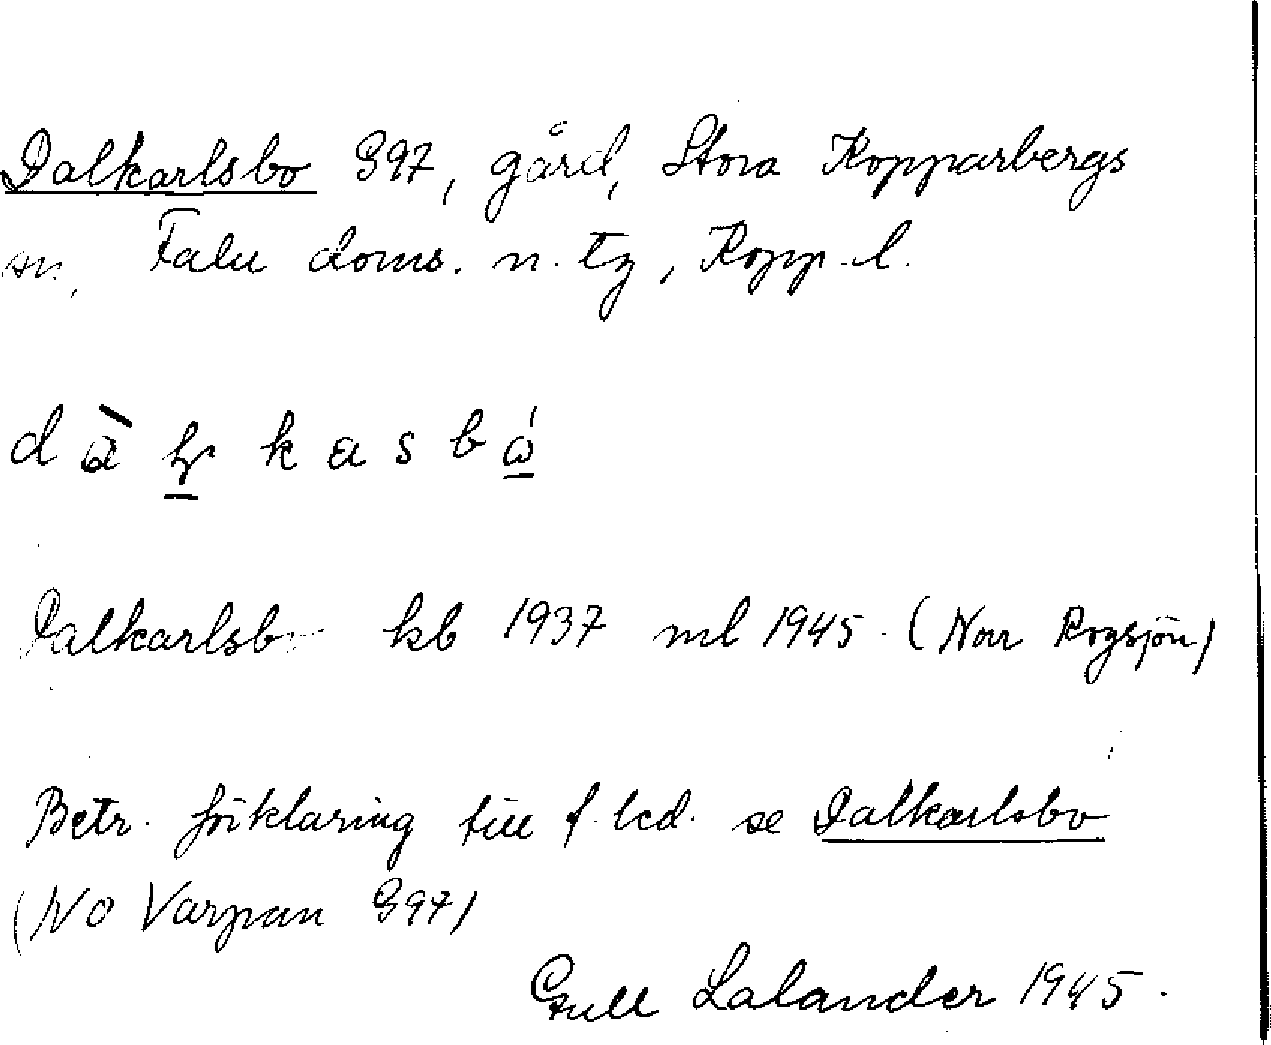 Dalkarlsbo G97, gård, Stora Kopparbergs
sn, Falu doms. n. tg, Kopp. l.
Dalkarlsbo kb 1937 ml 1945 (Norr Rogsjön)
Betr. förklaring till f. led. se Dalkarlsbo
(NO Varpan G97)
Gull Lalander 1945.